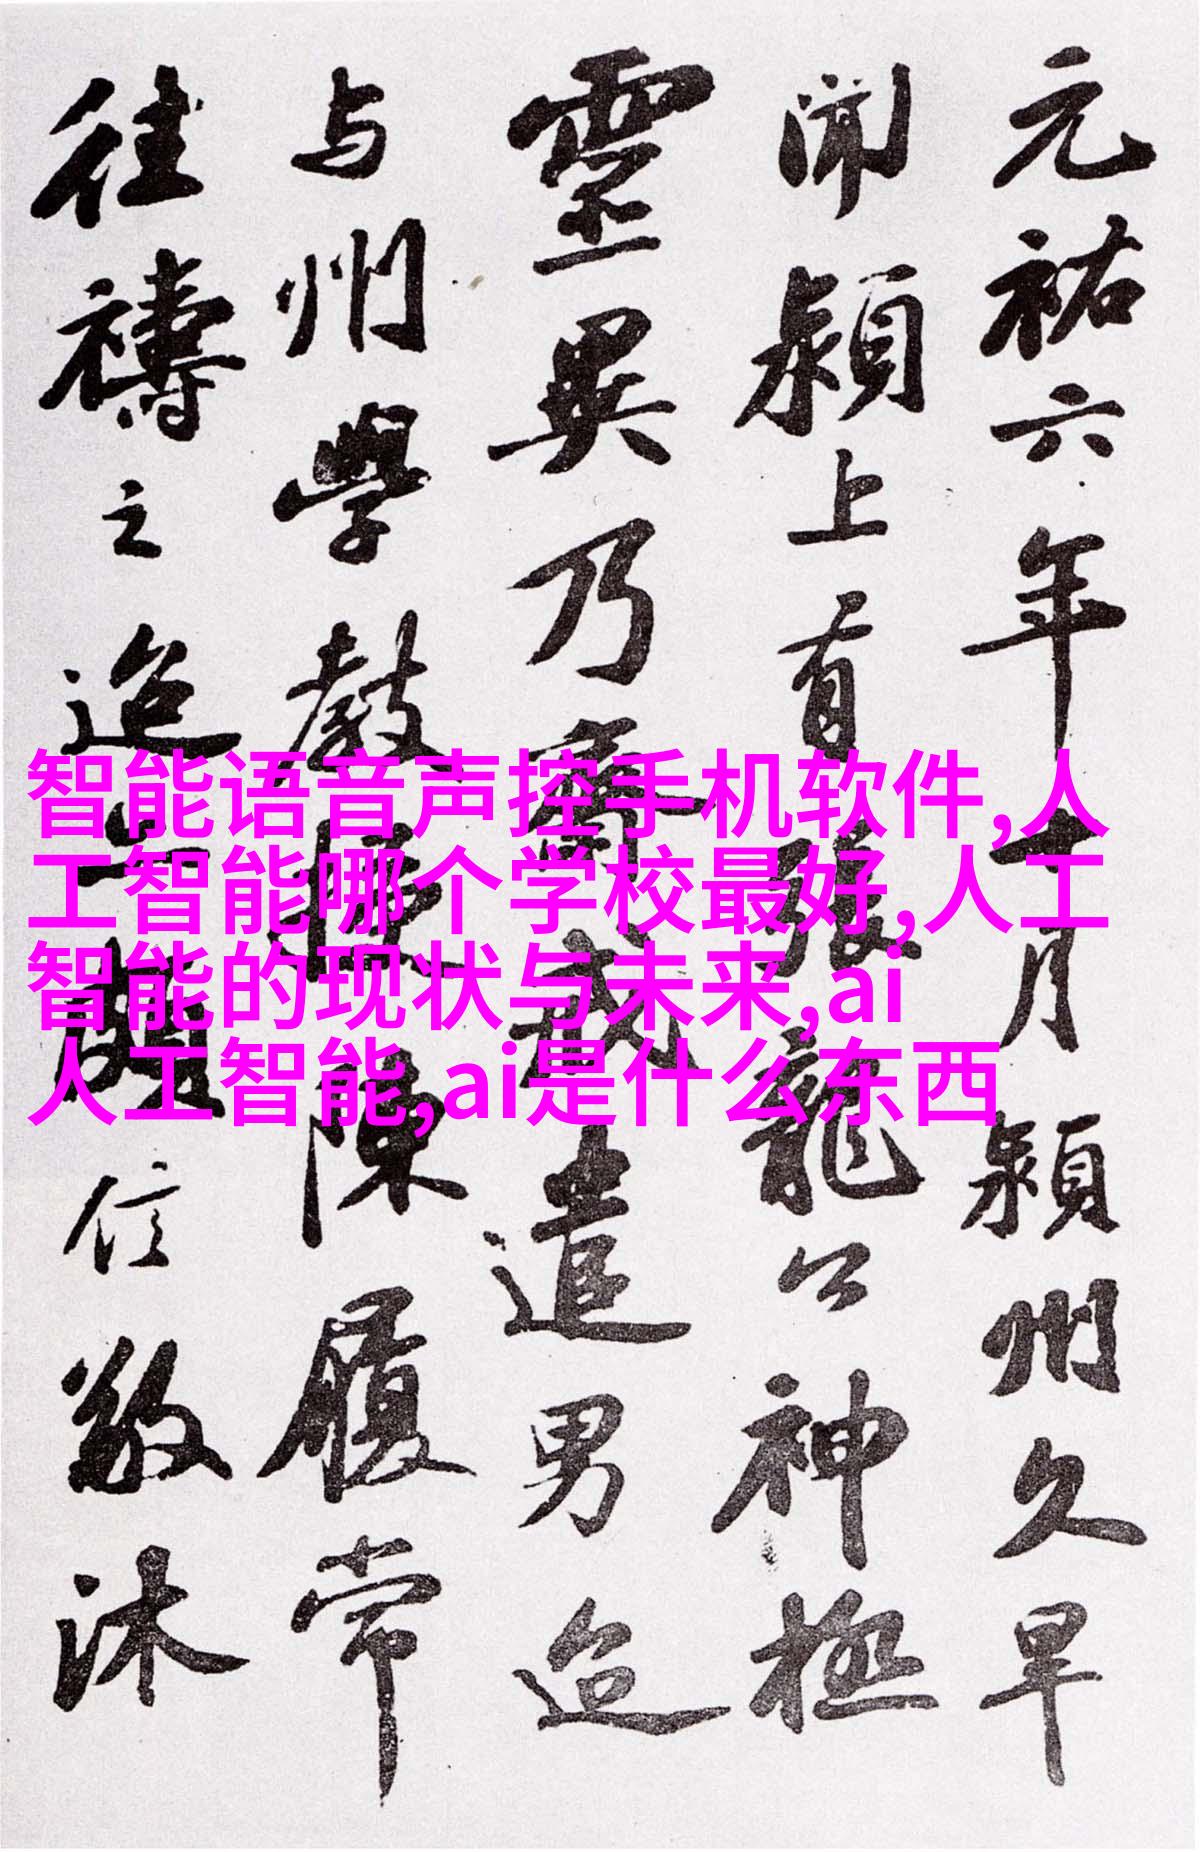 元祐六年十月潁州久旱
聞潁上有張龍公神極
靈異乃齋戒遣男迨
与州學教授陳履常
往禱之迨亦頗信敬沐
智能语音声控手机软件,人
工智能哪个学校最好,人工
智能的现状与未来,ai
人工智能,ai是什么东西